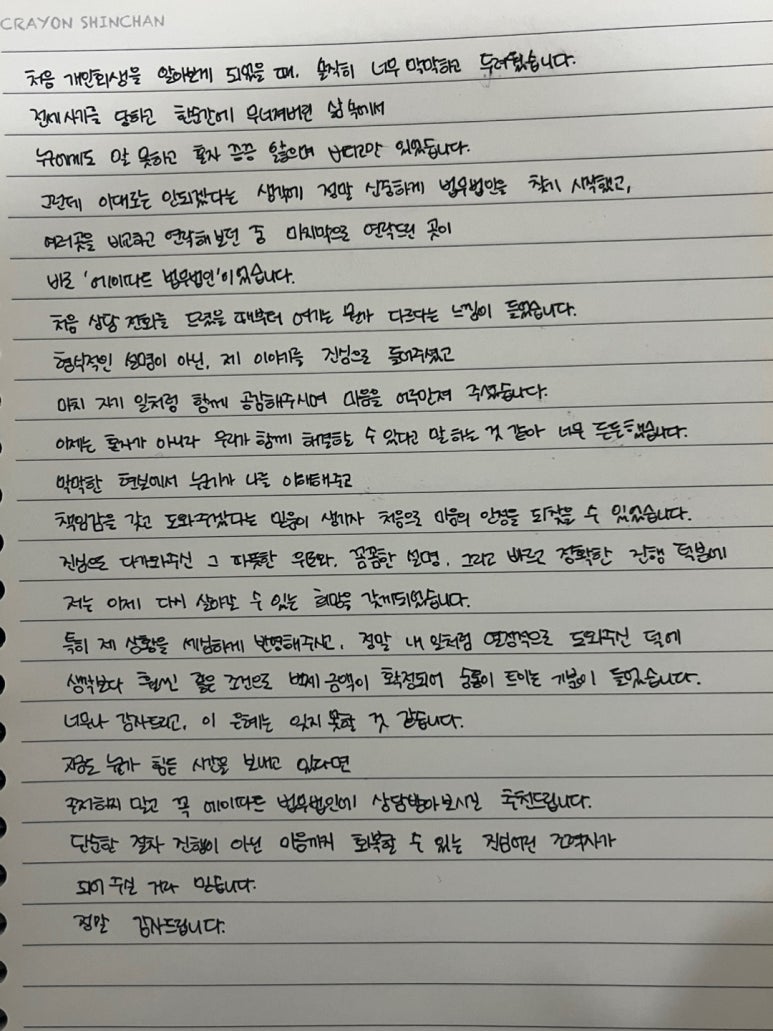 CRAYON SHINCHAN
처음 개인회생을 알아보게 되었을 때, 솔직히 너무 막막하고 두려웠습니다.
전세사기를 당하고 한순간에 무너져버린 삶 속에서
누구에게도 말 못하고 혼자 끙끙 앓으며 버티고만 있었습니다.
그런데 이대로는 안되겠다는 생각에 정말 신중하게 법무법인을 찾기 시작했고,
여러곳을 비교하고 연락해보던 중 마지막으로 연락드린 곳이
바로 '에이파트 법무법인'이었습니다.
처음 상담 전화를 드렸을 때부터 여기는 뭔가 다르다는 느낌이 들었습니다.
형식적인 설명이 아닌, 제 이야기를 진심으로 들어주셨고
마치 자기 일처럼 함께 공감해주시며 마음을 어루만져 주셨습니다.
이제는 혼자가 아니라 우리가 함께 해결할 수 있다고 말하는 것 같아 너무 든든했습니다.
막막한 현실에서 누군가 나를 이해해주고
책임감을 갖고 도와주겠다는 믿음이 생기자 처음으로 마음의 안정을 되찾을 수 있었습니다.
진심으로 다가와주신 그 따뜻한 위로와, 꼼꼼한 설명, 그리고 빠르고 정확한 진행 덕분에
저는 이제 다시 살아갈 수 있는 희망을 갖게되었습니다.
특히 제 상황을 세심하게 반영해주시고, 정말 내 일처럼 열정적으로 도와주신 덕에
생각보다 훨씬 좋은 조건으로 변제금액이 확정되어 숨통이 트이는 기분이 들었습니다.
너무나 감사드리고, 이 은혜는 잊지 못할 것 같습니다.
지금도 누군가 힘든 시간을 보내고 있다면
주저하지 말고 꼭 에이파트 법무법인에 상담받아보시길 추천드립니다.
단순한 절차 진행이 아닌 마음까지 회복할 수 있는 진심어린 조력자가
되어 주실 거라 믿습니다.
정말 감사드립니다.